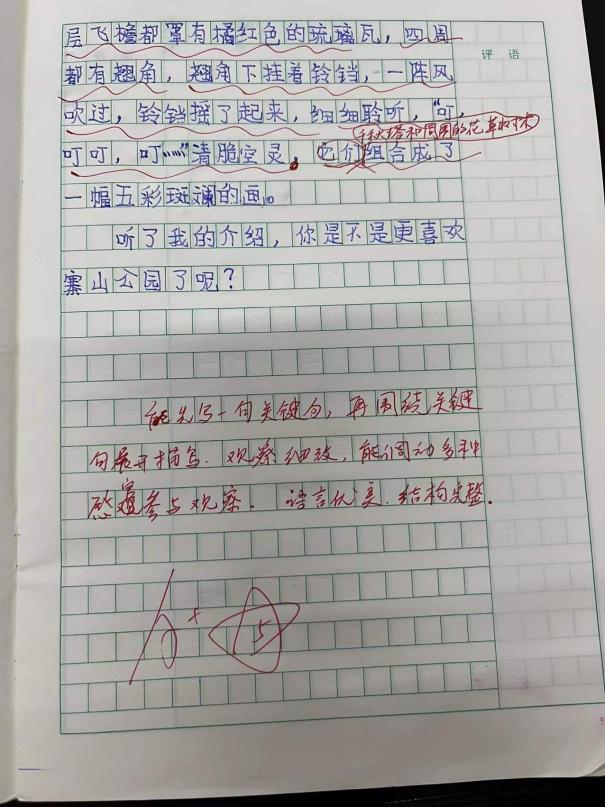 层飞檐都罩有橘红色的琉璃瓦，四周
评 语
都有翘角，翘角下挂着铃铛，一阵风
吹过，铃铛摇了起来，细细聆听，“叮，
秋塔和周围的花草树木
叮叮，叮……”清脆空灵。它们组合成了
一幅五彩斑斓的画。
听了我的介绍，你是不是更喜欢
寨山公园了呢？
能先写一句关键句，再围绕关键
句展开描写．观察细致，能调动多种
感官参与观察．语言优美．结构完整．
A+ 5